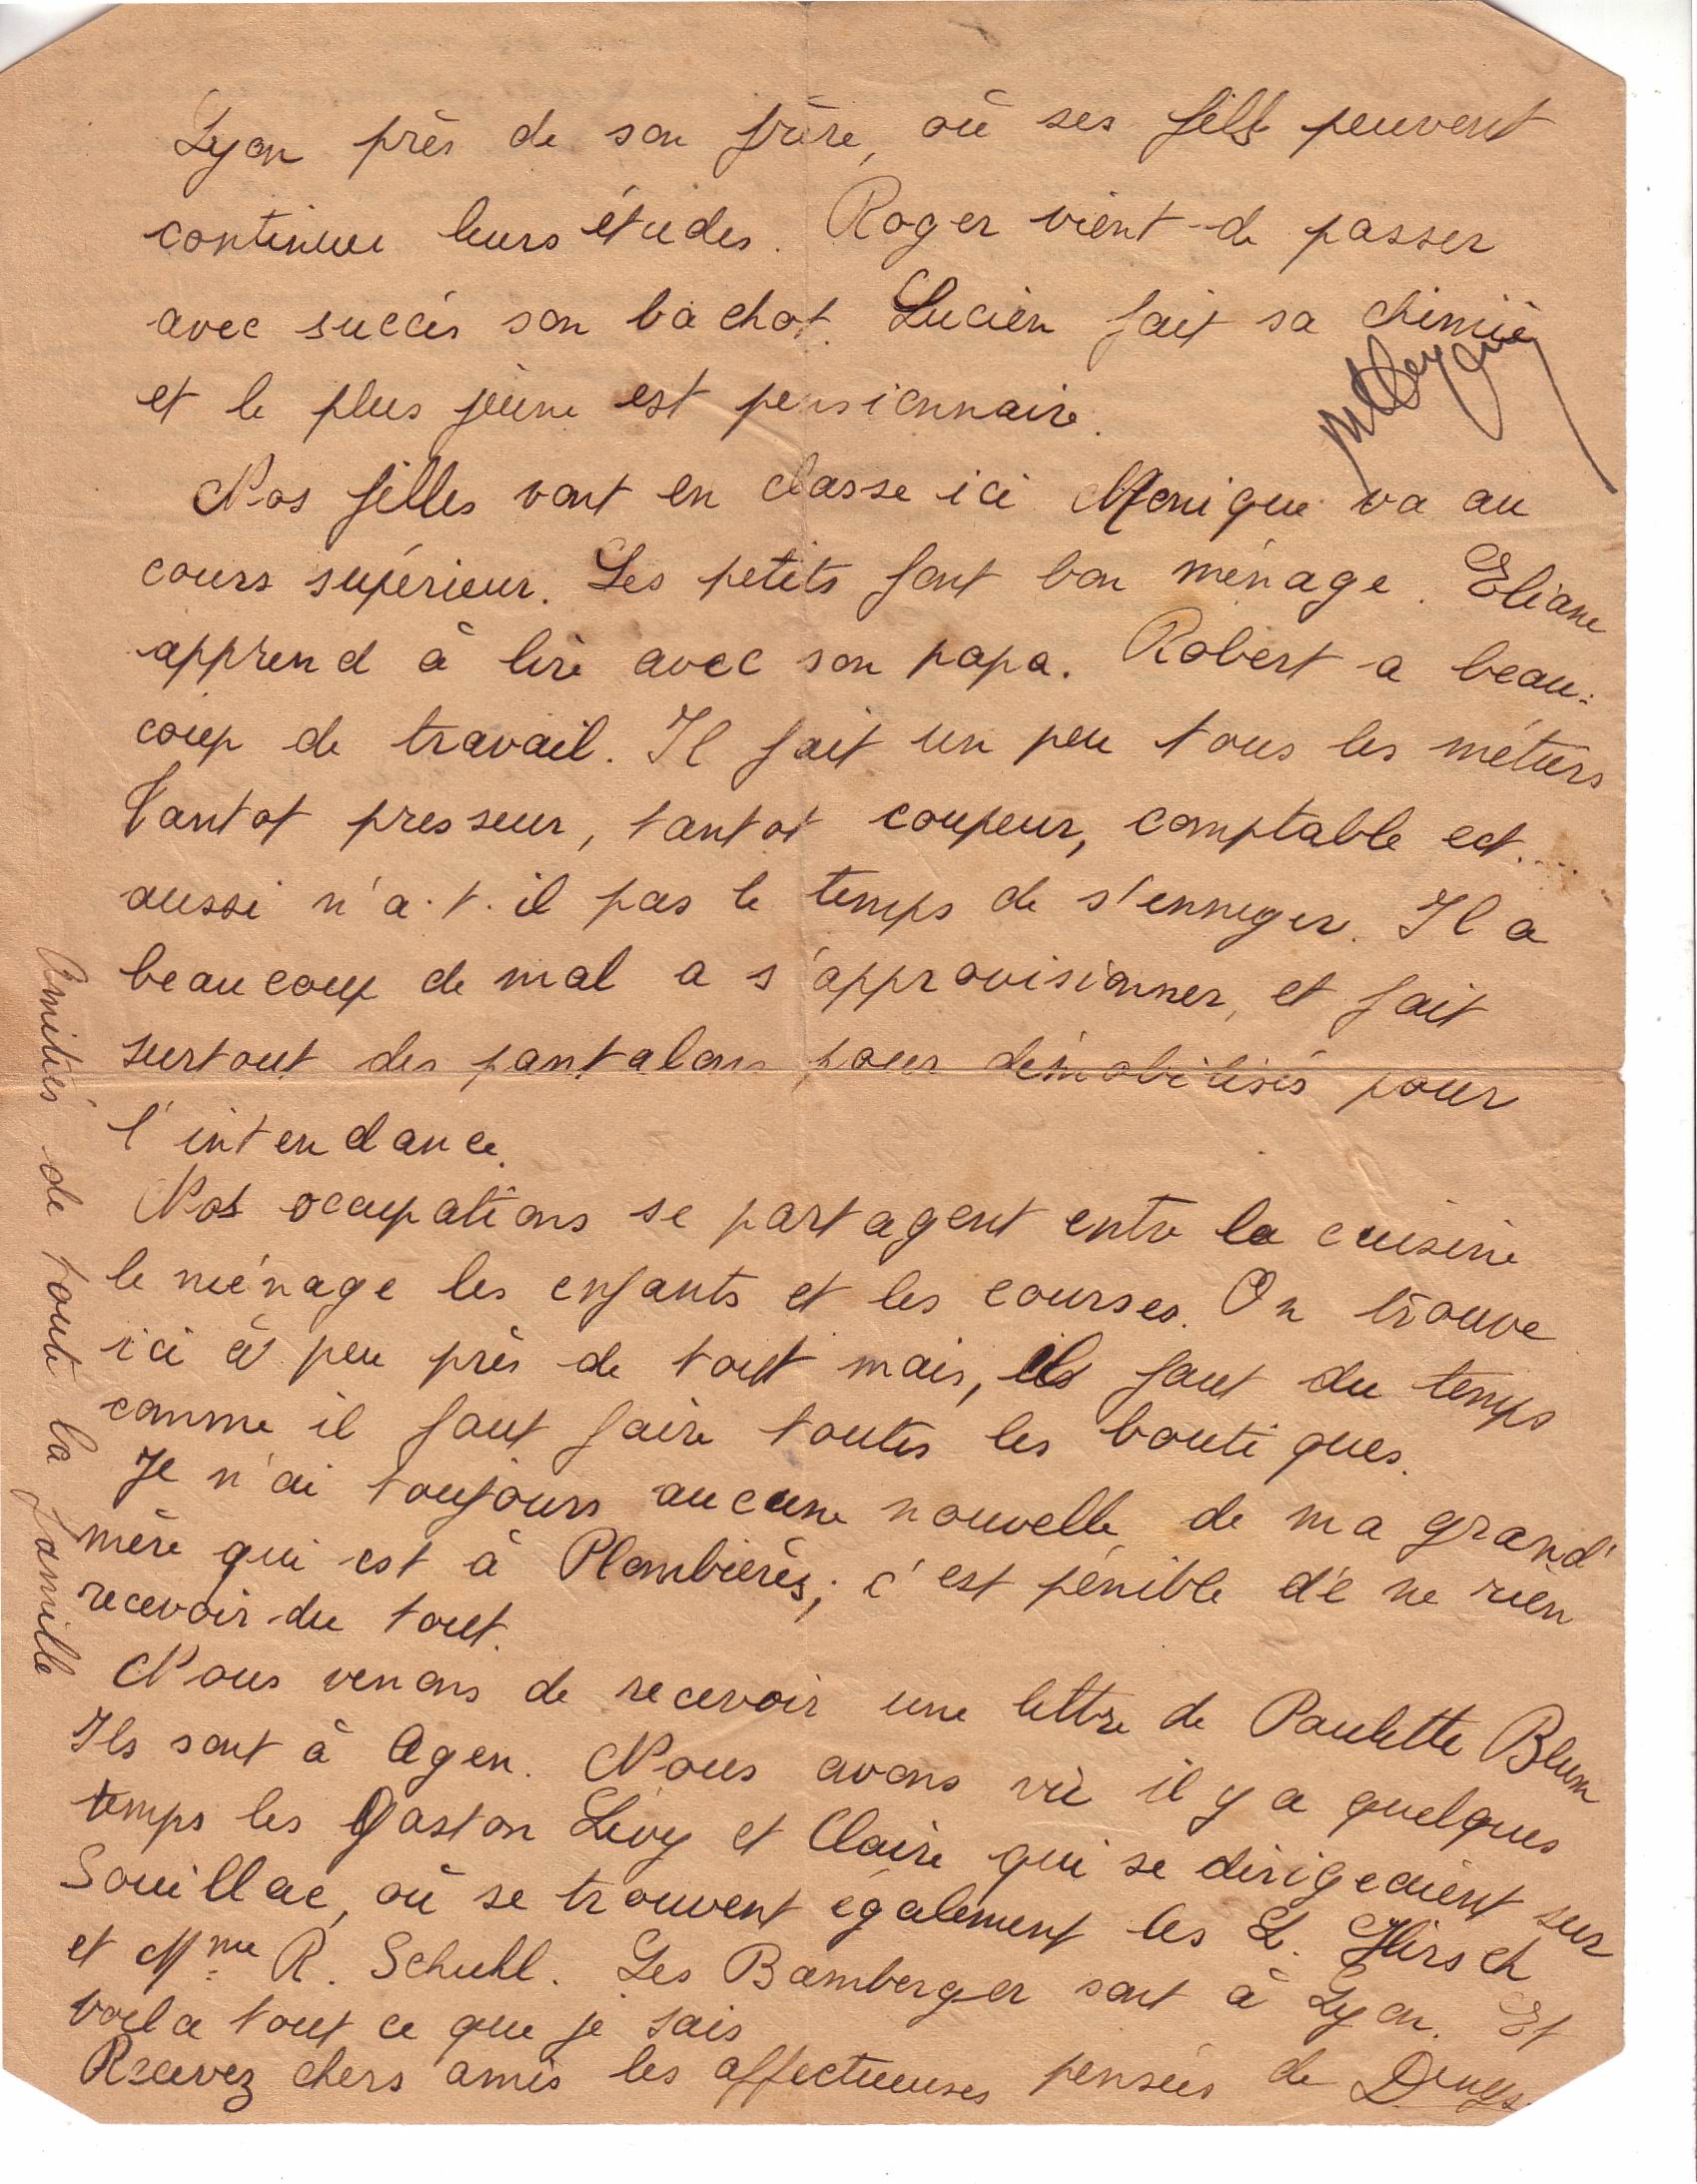 Lyon près de son frère, où ses fils peuvent
continuer leurs études. Roger vient de passer
avec succès son bachot. Lucien fait sa chimie
et le plus jeune est pensionnaire.
Nos filles vont en classe ici Monique va au
cours supérieur. Les petits font bon ménage. Eliane
apprend à lire avec son papa. Robert a beau-
coup de travail. Il fait un peu tous les métiers
tantot presseur, tantot coupeur, comptable ect...
aussi n'a-t-il pas le temps de s'ennuyer. Il a
beaucoup de mal a s'approvisionner, et fait
surtout des pantalons pour démobilisés pour
l'intendance.
Nos ocupations se partagent entre la cuisine
le ménage les enfants et les courses. On trouve
ici à peu près de tout mais, il faut du temps
comme il faut faire toutes les boutiques.
Je n'ai toujours aucune nouvelle de ma grand'
mère qui est à Plombières; c'est pénible de ne rien
recevoir du tout.
Nous venons de recevoir une lettre de Paulette Blum
Ils sont à Agen. Nous avons vu il y a quelques
temps les Gaston Lévy et Claire qui se dirigeaient sur
Souillac, où se trouvent également les L. Hirsch
et Mme R. Schuhl. Les Bamberger sont à Lyon. Et
voila tout ce que je sais
Recevez chers amis les affectueuses pensées de
Amitiés de toute la famille